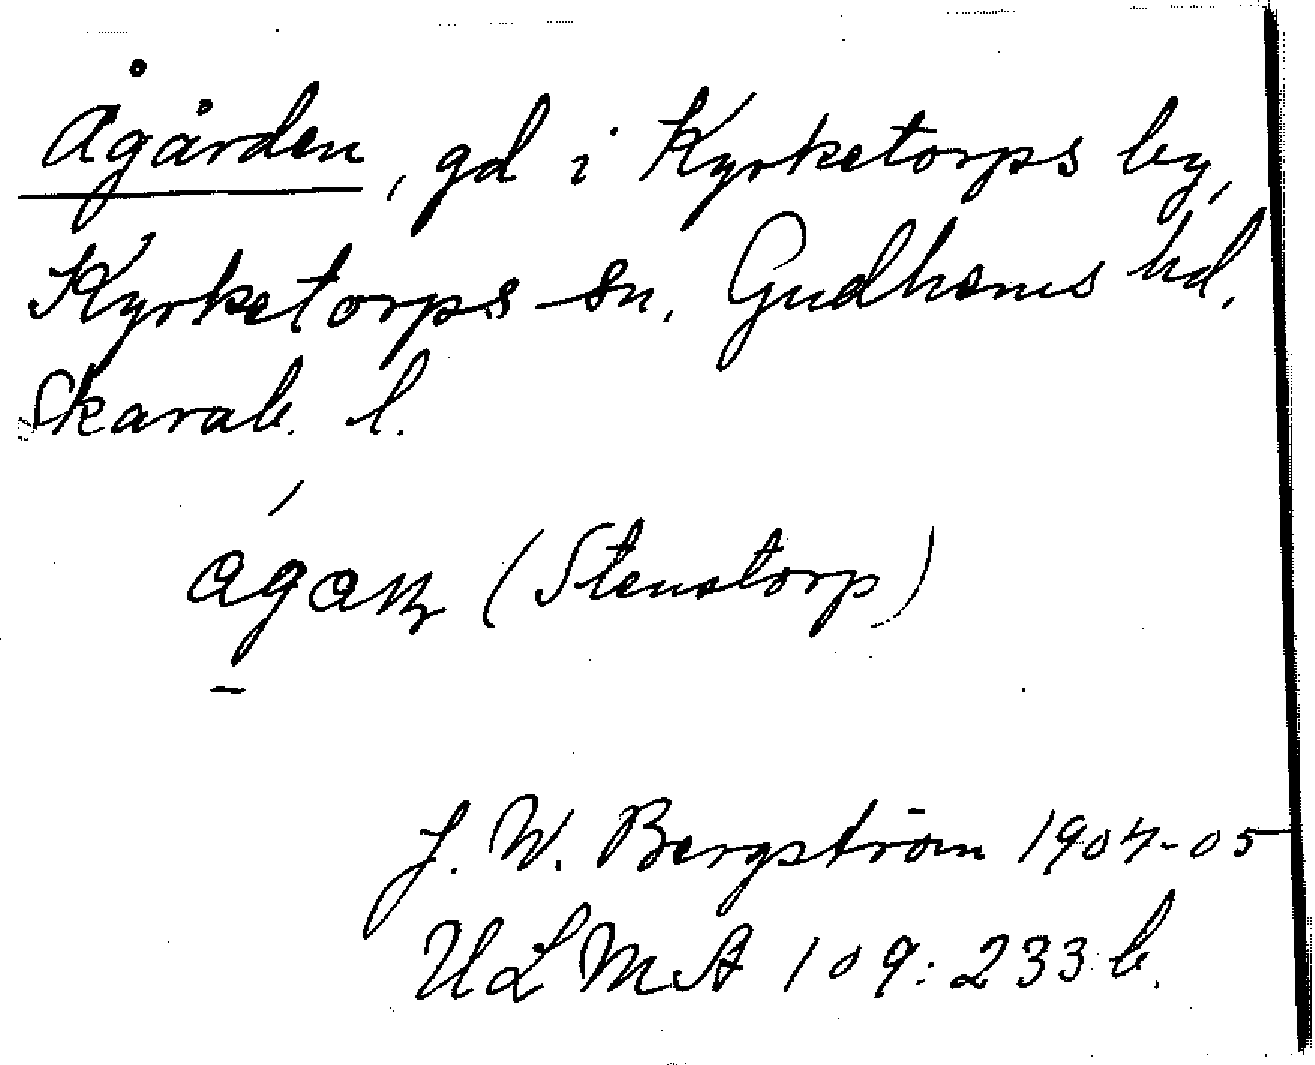 Ågården, gd i Kyrketorps by,
Kyrketorps sn, Gudhems hd,
Skarab. l.
(Stenstorp)
J. W. Bergström 1904-05
ULMA 109:233 b.